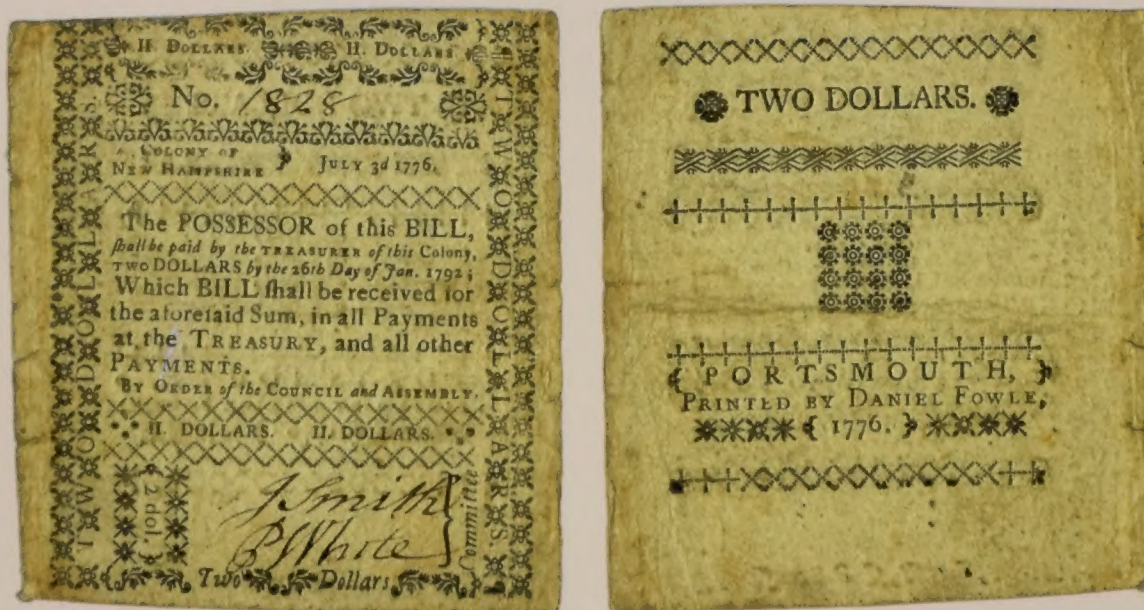 II. DOLLARS. II. DOLLARS.
No. 1828
COLONY OF
NEW HAMPSHIRE } JULY 3d 1776.
The POSSESSOR of this BILL,
ſhall be paid by the TREASURER of this Colony,
TWO DOLLARS by the 26th Day of Jan. 1792;
Which BILL ſhall be received for
the aforeſaid Sum, in all Payments
at the TREASURY, and all other
PAYMENTS.
BY ORDER of the COUNCIL and ASSEMBLY.
II. DOLLARS. II. DOLLARS.
2 dol.
J Smith
P White
} Committee
Two Dollars
TWO DOLLARS.
TWO DOLLARS.
TWO DOLLARS.
PORTSMOUTH,
PRINTED BY DANIEL FOWLE,
{ 1776. }